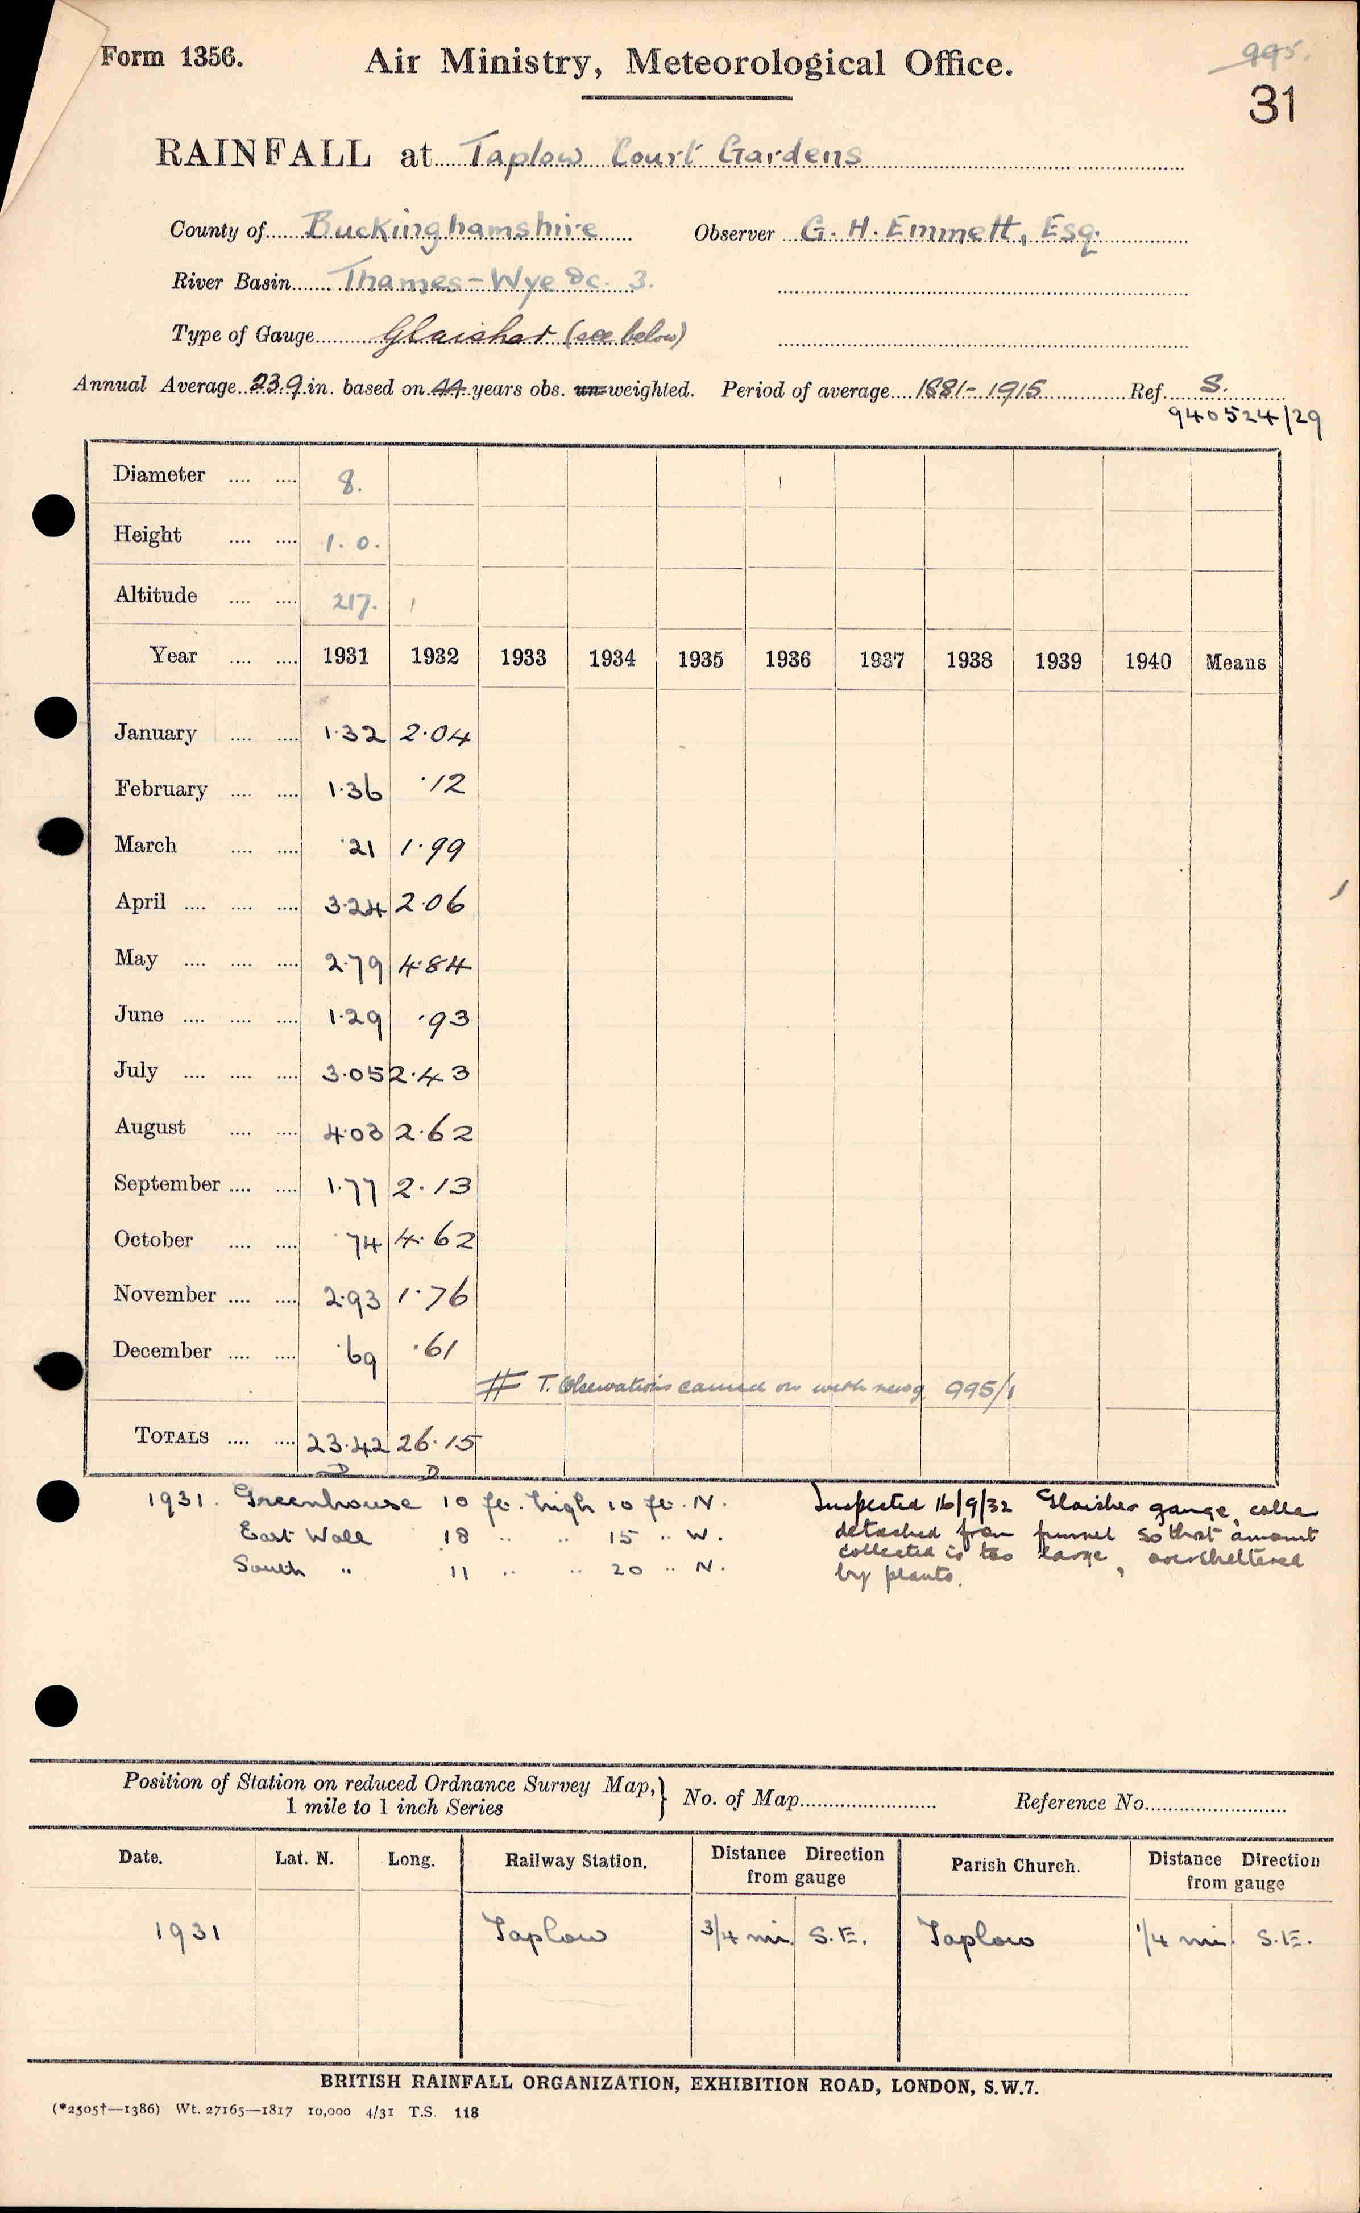 Form 1356.
Air Ministry, Meteorological Office.
995.
31
RAINFALL at Taplow Court Gardens
County of Buckinghamshire Observer G. H. Emmett, Esq.
River Basin Thames - Wye &c. 3.
Type of Gauge Glaisher (see below)
Annual Average 23.9 in. based on 44 years obs. un-weighted. Period of average 1881-1915 Ref. S.
940524/29
Diameter .... .... 8.
Height .... .... 1. 0.
Altitude .... .... 217.
Year .... .... 1931 1932 1933 1934 1935 1936 1937 1938 1939 1940 Means
January .... .... 1.32 2.04
February .... .... 1.36 .12
March .... .... .21 1.99
April .... .... .... 3.24 2.06
May .... .... .... 2.79 4.84
June .... .... .... 1.29 .93
July .... .... .... 3.05 2.43
August .... .... 4.03 2.62
September .... .... 1.77 2.13
October .... .... .74 4.62
November .... .... 2.93 1.76
December .... .... .69 .61
# T. Observations carried on with new g 995/1
TOTALS .... .... 23.42 26.15
D D
1931. Greenhouse 10 ft. high 10 ft. N.
East Wall 18 " " 15 " W.
South " 11 " " 20 " N.
Inspected 16/9/32 Glaisher gauge, collar
detached from funnel so that amount
collected is too large, oversheltered
by plants.
Position of Station on reduced Ordnance Survey Map, 1 mile to 1 inch Series } No. of Map Reference No.
Date. Lat. N. Long. Railway Station. Distance Direction from gauge Parish Church. Distance Direction from gauge
1931 Taplow 3/4 mi. S.E. Taplow 1/4 mi. S.E.
BRITISH RAINFALL ORGANIZATION, EXHIBITION ROAD, LONDON, S.W.7.
(*2505†—1386) Wt. 27165—1817 10,000 4/31 T.S. 118